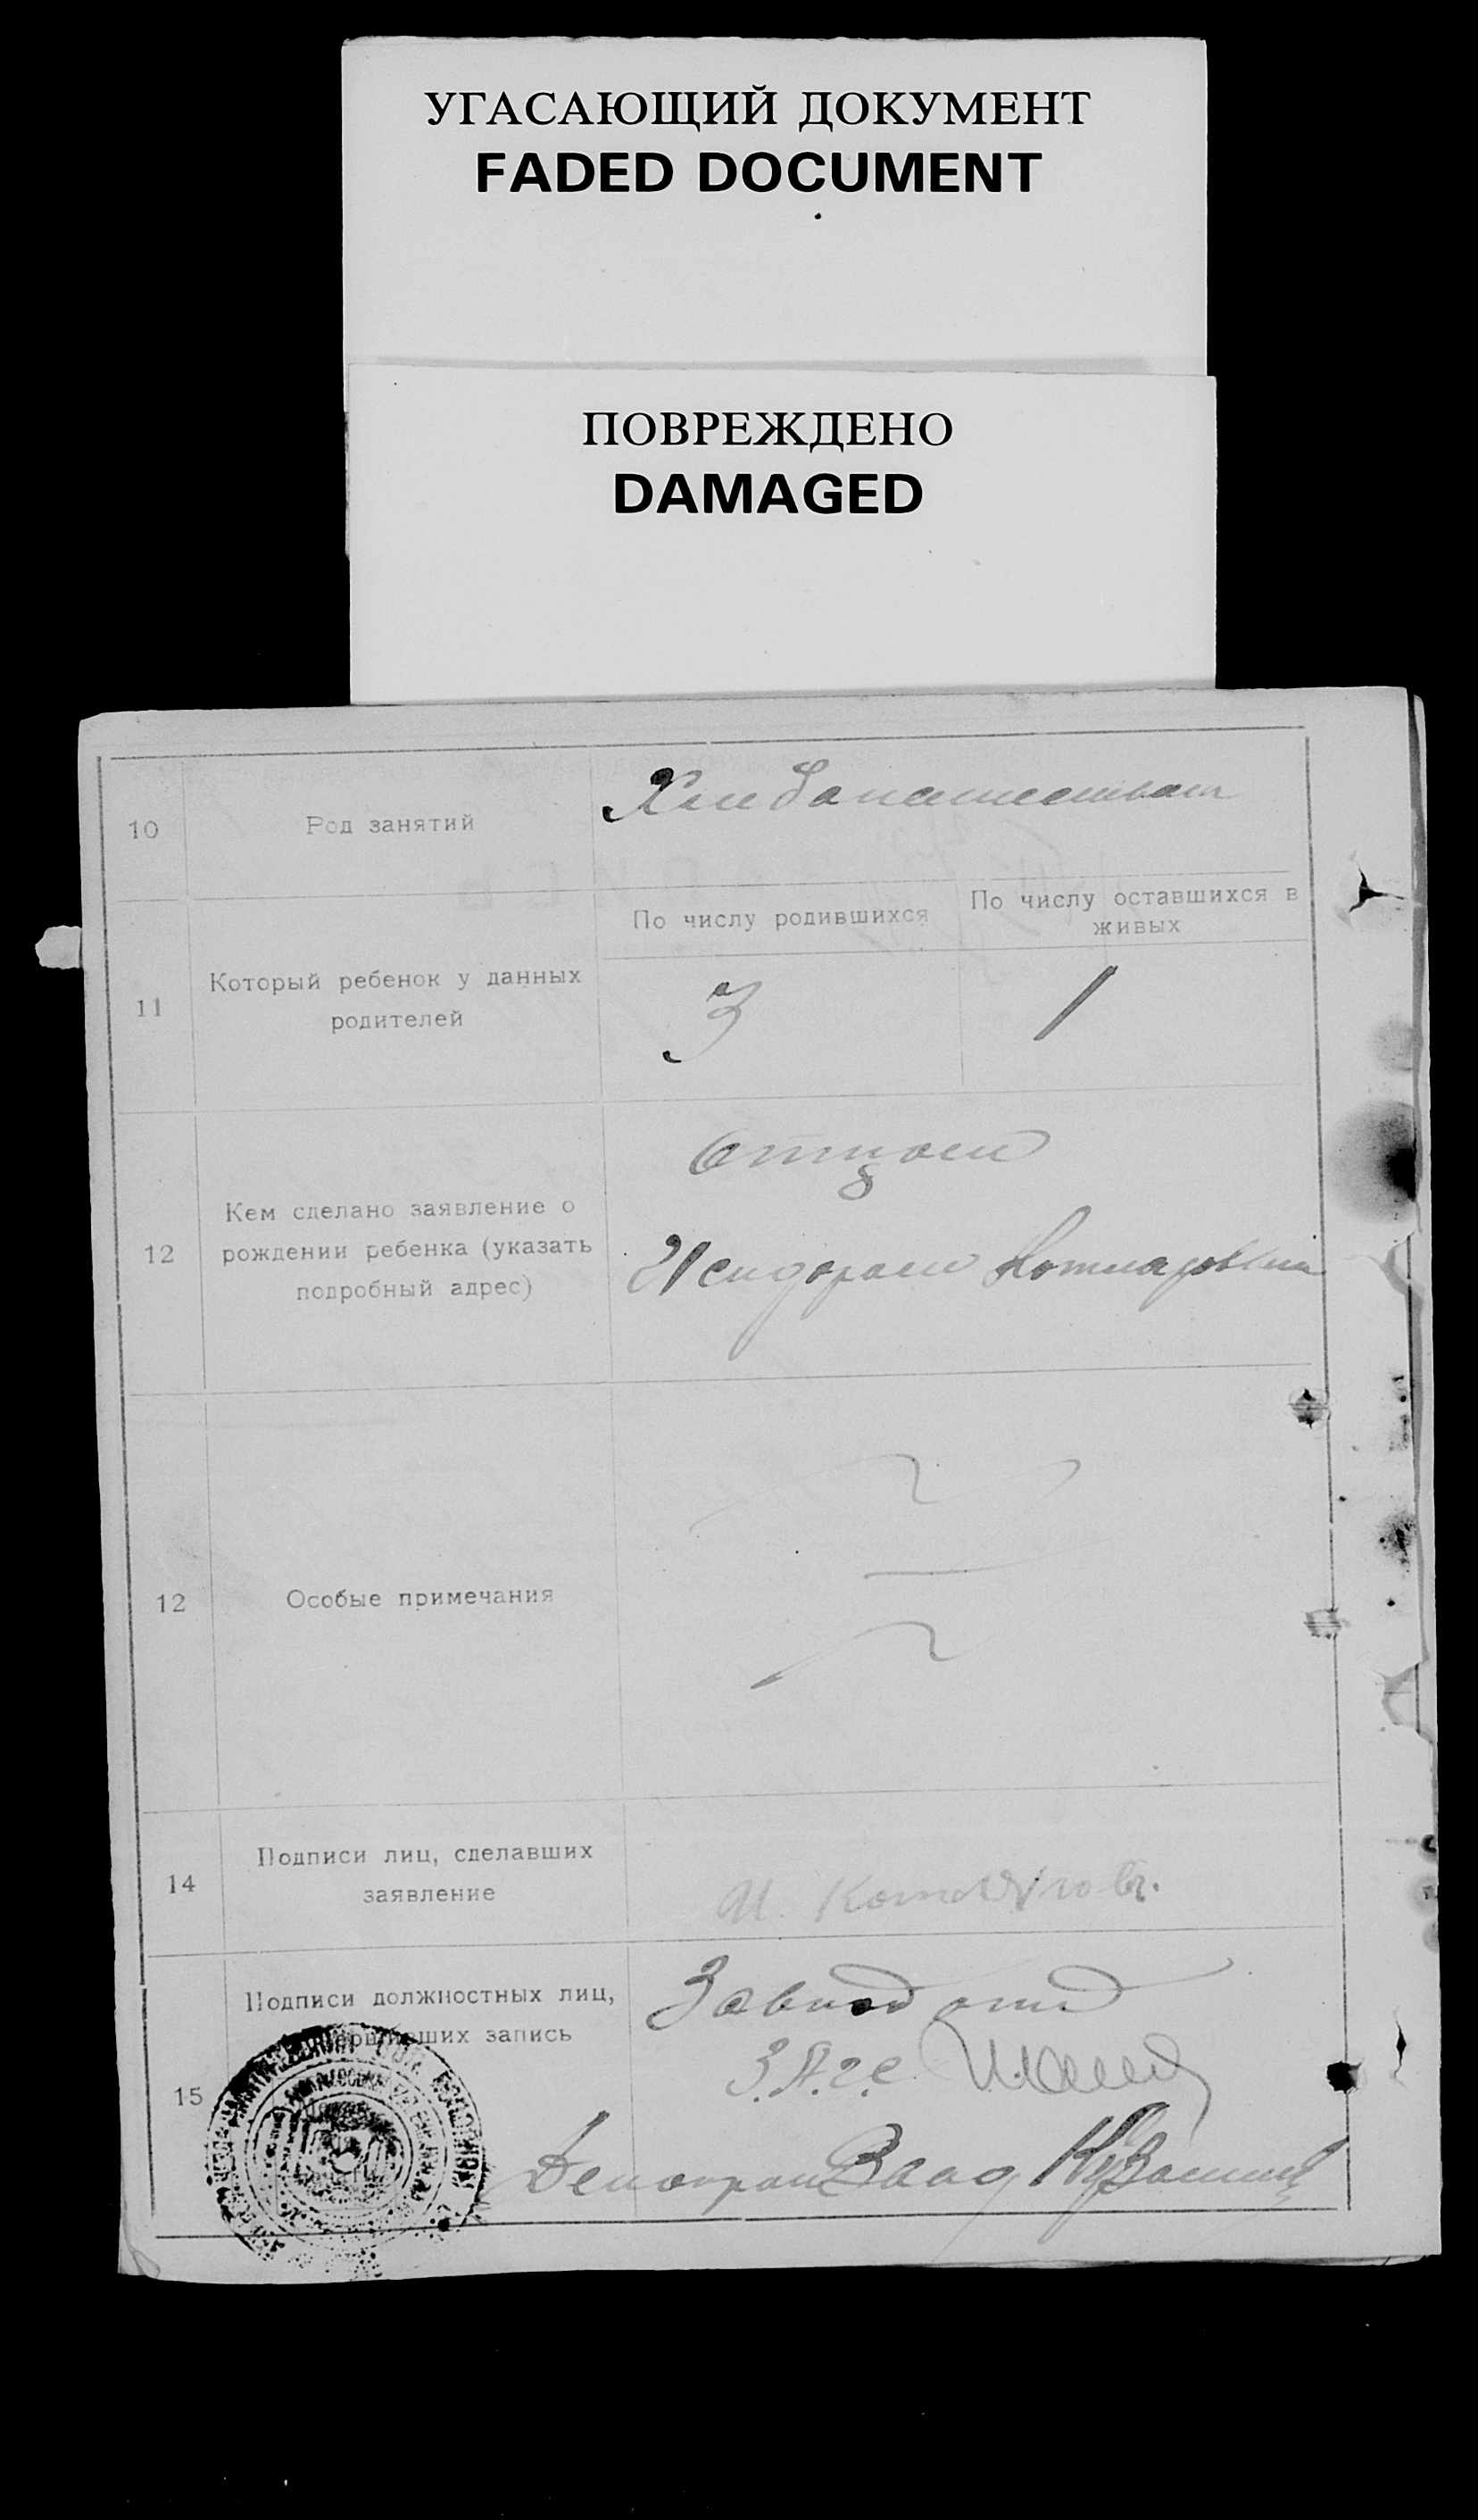 УГАСАЮЩИЙ ДОКУМЕНТ
FADED DOCUMENT
ПОВРЕЖДЕНО
DAMAGED
10
Род занятий
Хлебопашеством
11
Который ребенок у данных
родителей
По числу родившихся
По числу оставшихся в
живых
3
1
12
Кем сделано заявление о
рождении ребенка (указать
подробный адрес)
Отцом
Исидором
12
Особые примечания
14
Подписи лиц, сделавших
заявление
И.
15
Подписи должностных лиц,
запись
Завпод отд
З.А.Г.С.